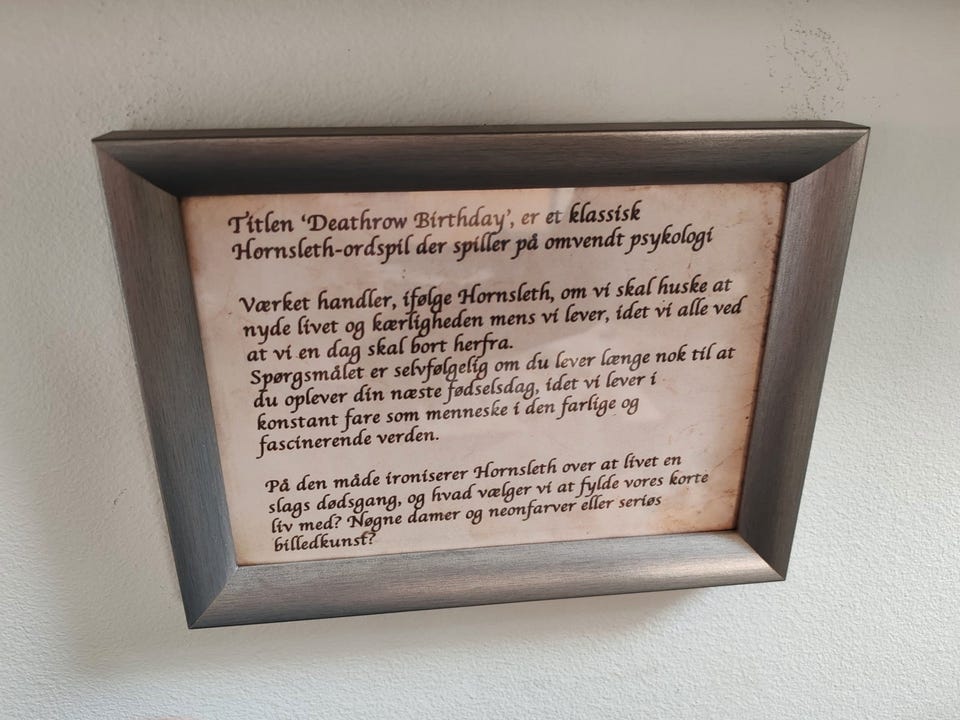 Titlen ‘Deathrow Birthday’, er et klassisk
Hornsleth-ordspil der spiller på omvendt psykologi
Værket handler, ifølge Hornsleth, om vi skal huske at
nyde livet og kærligheden mens vi lever, idet vi alle ved
at vi en dag skal bort herfra.
Spørgsmålet er selvfølgelig om du lever længe nok til at
du oplever din næste fødselsdag, idet vi lever i
konstant fare som menneske i den farlige og
fascinerende verden.
På den måde ironiserer Hornsleth over at livet en
slags dødsgang, og hvad vælger vi at fylde vores korte
liv med? Nøgne damer og neonfarver eller seriøs
billedkunst?